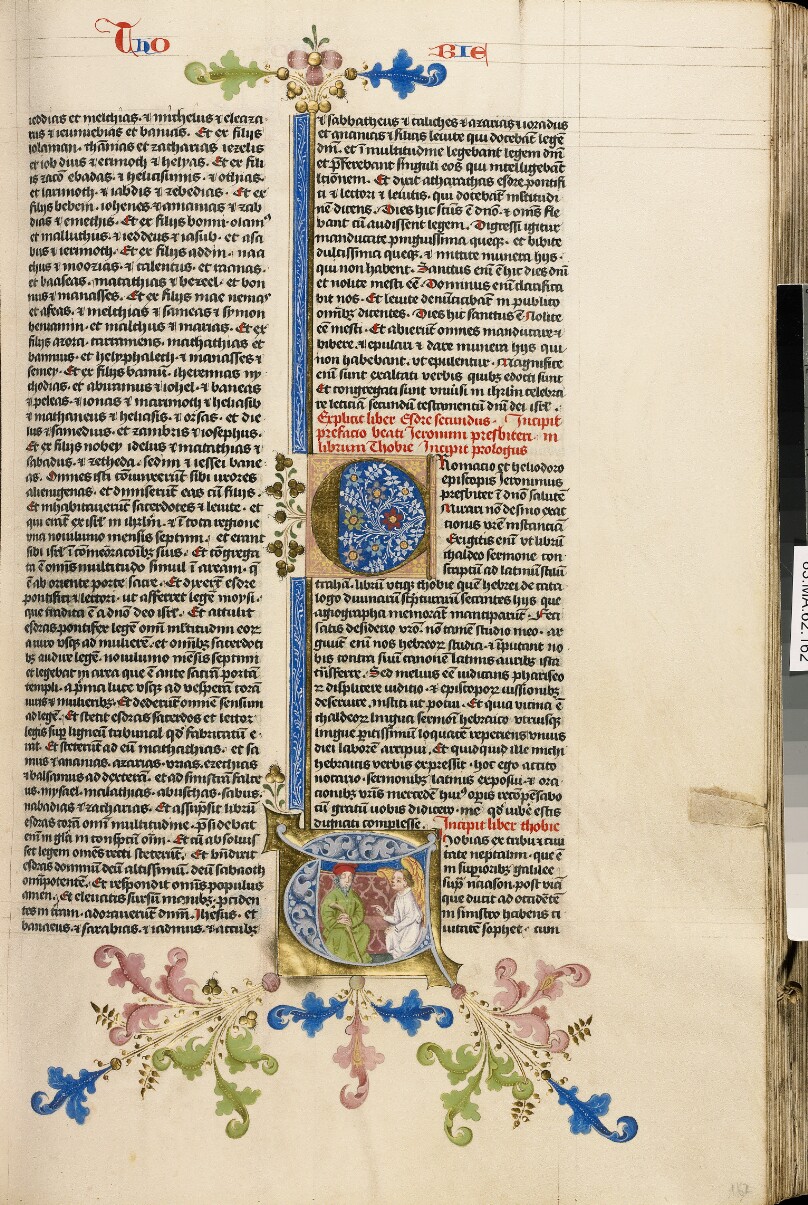 Tho
bie
ieddias et melchias ⁊ michelus ⁊ eleaza
rus ⁊ iemmebias et banias. Et ex filijs
iolaman. thamas et zacharias iezelis
et iob dius ⁊ erimoth ⁊ helyas. Et ex fili
is zato ebadas. ⁊ heliasimis. ⁊ othias.
et larimoth. ⁊ iabdis ⁊ zebedias. Et ex
filijs bebem. iohenes ⁊ amanias ⁊ zab
dias ⁊ emethis. Et ex filijs
et malluthus. ⁊ ieddeus ⁊ iasub. et asa
bus ⁊ ierimoth. Et ex filijs addin. naa
thus ⁊ moozias. ⁊ calentus. et raanas.
et baaseas. matathias ⁊ bezeel. et bon
nus ⁊ manasses. Et ex filijs
et afeas. ⁊ melchias ⁊ sameas ⁊ symon
beniamin. et malchus ⁊ marias. Et ex
filijs azora. carramens. mathathias et
bannus. et helyphaleth. ⁊ manasses ⁊
semey. Et ex filijs banni. iheremias
thodias. et abiramus ⁊ iohel. ⁊ baneas
⁊ peleas. ⁊ ionas ⁊ marimoth ⁊ heliasib
⁊ mathaneus ⁊ heliasis. ⁊ orsas. et die
lus ⁊ samedius. et zambris ⁊ iosephus.
Et ex filijs nobey idelus ⁊ matathias ⁊
sabadus. ⁊ zetheda. sedmi ⁊ iessei bane
as. Omnes isti coiunxerūt sibi uxores
alienigenas. et dimiserūt eas cū filijs.
Et inhabitauerūt sacerdotes ⁊ leuite. et
qui erāt ex isrl in ihrlm. ⁊ ī tota regione
una nouilunio mensis septimi. et erant
sibi isrl ī cōmemoracōibꝫ suis. Et cōgrega
ta ē omīs multitudo simul ī aream. q̄
ē ab oriente porte sacre. Et dixerūt esdre
pontifici ⁊ lectori. ut afferret legē moysi.
que tradita ē a dn̄o deo isrl. Et attulit
esdras pontifex legē om̄i mltitudini eoꝝ
a uiro usqꝫ ad mulierē. et omībꝫ sacerdoti
bꝫ audire legē. nouilunio mēsis septimi
et legebat in area que ē ante sacrā portā
templi. a prīa luce usqꝫ ad vesperā corā
uiris ⁊ mulieribꝫ. Et dederūt omnē sensum
ad legē. Et stetit esdras sacerdos et lector
legis sup ligneū tribunal qd fabricatū e
rat. Et steterūt ad eū mathathias. et sa
mus ⁊ ananias. azarias. urias. ezechias
⁊ balsamus ad dexterā. et ad sinistrā falte
us. mysael. malathias. abusthas. sabus.
nabadias ⁊ zacharias. Et assūpsit librū
esdras corā omi multitudine. p̄sidebat
enī in glīa in conspcū oīm. Et cū absoluis
set legem omēs recti steterūt. Et bn̄dixit
esdras dominū deū altissimū. deū sabaoth
om̄ipotentē. Et respondit omīs populus
amen. Et eleuatis sursū manibꝫ. prciden
tes in terram. adorauerūt dnm̄. Jhesus. et
banaeus. ⁊ sarabias. ⁊ iadmus. ⁊ accubꝫ
⁊ sabbatheus ⁊ caliches ⁊ azarias ⁊ ioradus
et ananias ⁊ filias leuite qui docebāt legē
dni. et ī multitudine legebant legem dni
et p̄ferebant singuli eos qui intelligebāt
lctionem. Et dixit atharathas esdre pontifi
ci ⁊ lectori ⁊ leuitis. qui docebāt mltitudi
nē dicens. Dies hic scūs ē dn̄o. ⁊ om̄s fle
bant cū audissent legem. Digressi igitur
manducate pinguissima queqꝫ. et bibite
dulcissima queqꝫ. ⁊ mittite munera hijs.
qui non habent. Sanctus enī ē hic dies dni
et nolite mesti eē. Dominus enī clarifica
bit nos. Et leuite denūciabāt in publico
omībꝫ dicentes. Dies hic sanctus ē. Nolite
eē mesti. Et abierūt omnes manducare ⁊
bibere. ⁊ epulari ⁊ dare munera hijs qui
non habebant. ut epulentur. Magnifice
enī sunt exaltati verbis quibꝫ edocti sunt
Et congregati sunt vniūsi in ihrlm celebra
re leticiā secundū testamentū dni dei isrl.
Explicit liber Esdre secundus. Incipit
prefacio beati Jeronimi presbiteri in
librum Thobie Incipit prologus
CRomacio et heliodoro
episcopis Jeronimus
presbiter ī dn̄o salutē
Mirari non desino exac
tionis vr̄e instanciā
Exigitis enī vt librū
chaldeo sermone con
scriptū ad latinū stilū
trahā. librū utiqꝫ thobie quē hebrei de cata
logo diuinarū scpturarū secantes hijs que
agiographa memorāt manciparūt. Feci
satis desiderio vr̄o. nō tamē studio meo. ar
guūt enī nos hebreoꝝ studia. ⁊ īputant no
bis contra suū canonē latinis auribꝫ ista
trāsferre. Sed melius eē iudicans phariseo
ꝝ displicere iudicio. ⁊ episcopoꝝ iussionibꝫ
deseruire. institi ut potui. Et quia vicina ē
chaldeoꝝ lingua sermoni hebraico utriusqꝫ
lingue pitissimū loquacē repericns vnius
diei laborē arripui. Et quidquid ille michi
hebraicis verbis expressit. hoc ego accito
notario. sermonibꝫ latinis exposui. ⁊ ora
cionibꝫ vr̄is mercedē huiꝰ opis recōpēsabo
cū gratū uobis didicero. me qd iubē estis
dignati complesse. Incipit liber thobie
TObias ex tribu ⁊ ciui
tate neptalim. que ē
in supioribꝫ galilee
sup naason. post viā
que ducit ad occidētē
in sinistro habens ci
uitatē sophet. cum
83.MA.62.162
167